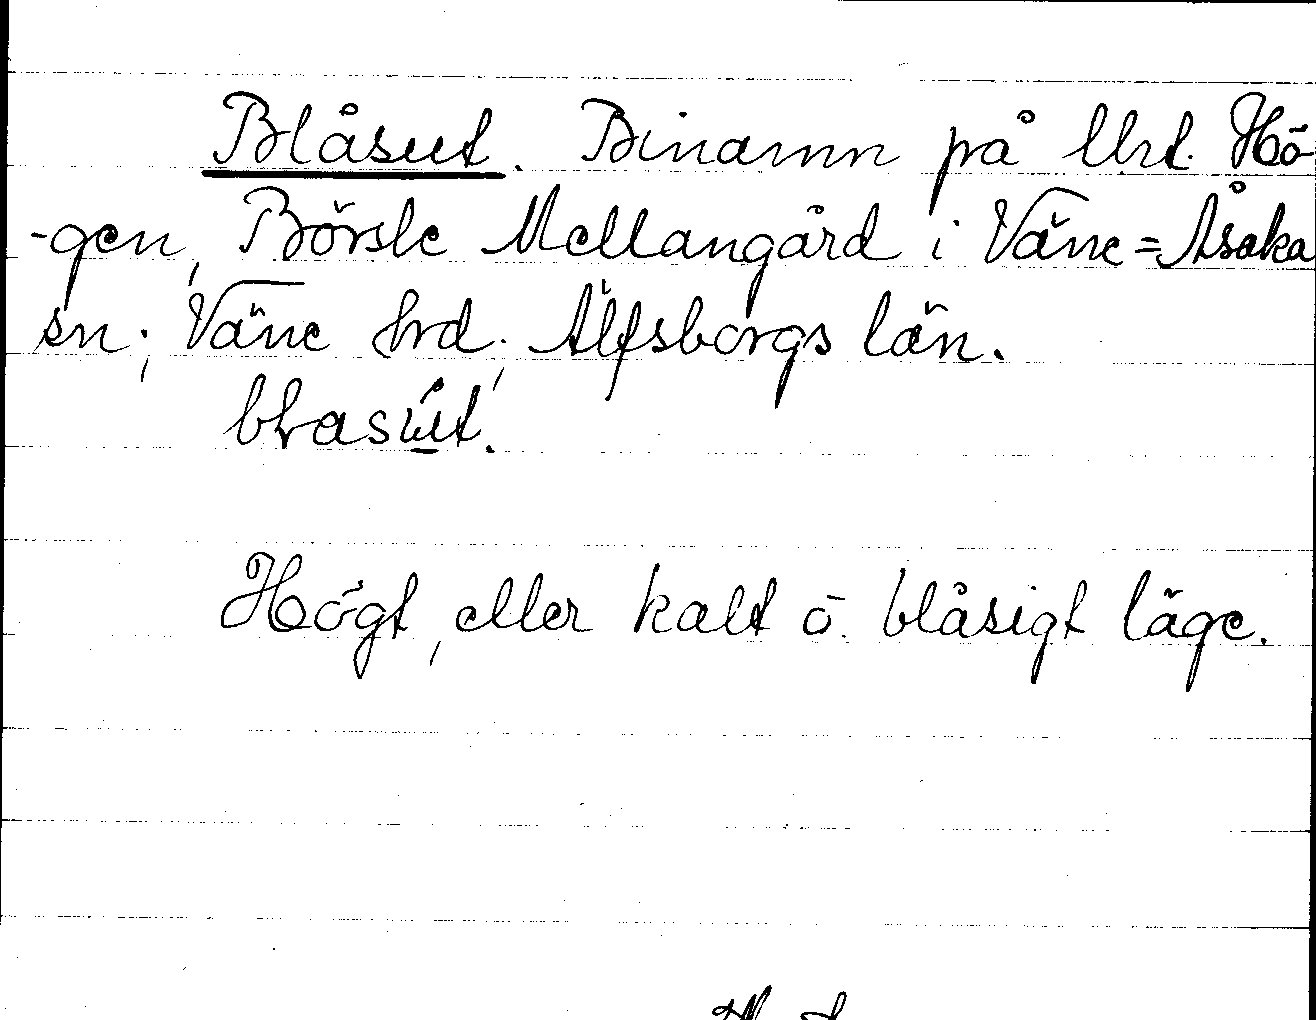 Blåsut. Binamn på lht. Hö-
-gen, Börsle Mellangård i Väne=Åsaka
sn; Väne hrd; Älfsborgs län.
Högt, eller kalt o. blåsigt läge.